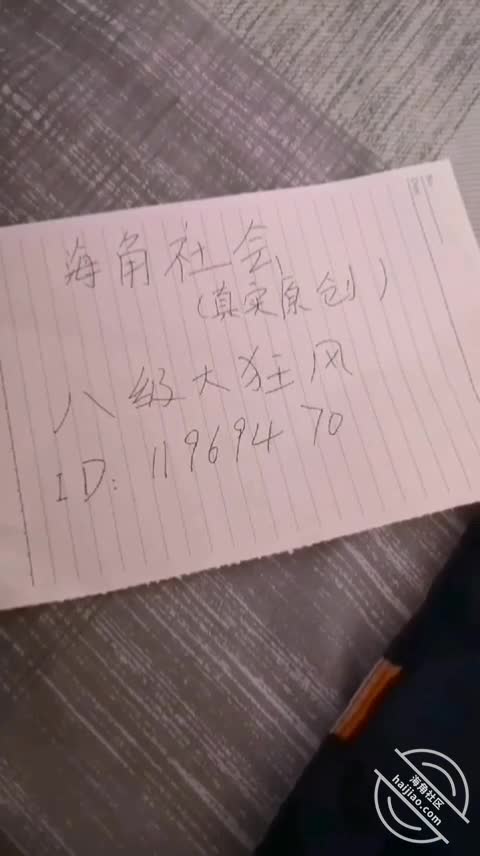 海角社会
(真实原创)
八级大狂风
ID: 11969470
海角社区
haijiao.com